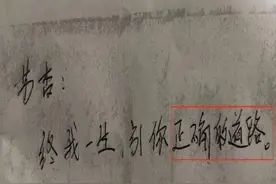 终我一生,引你正确的道路。